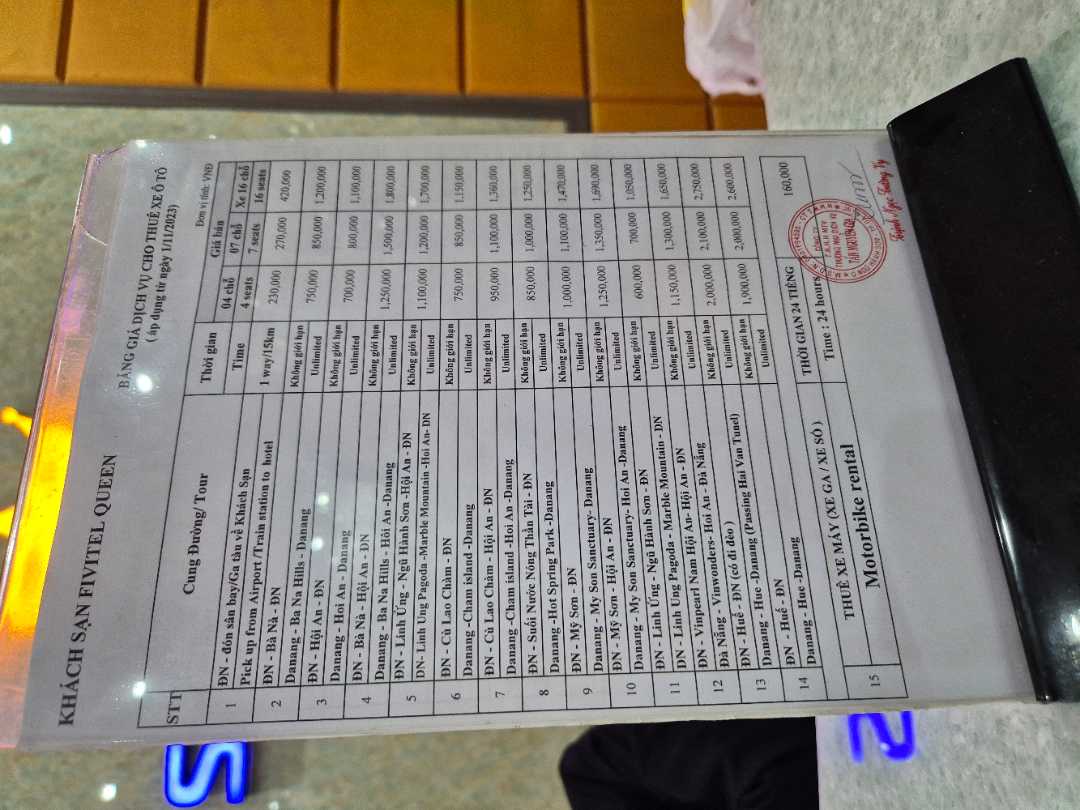 KHÁCH SẠN FIVITEL QUEEN
BẢNG GIÁ DỊCH VỤ CHO THUÊ XE Ô TÔ
( áp dụng từ ngày 1/11/2023)
Đơn vị tính: VNĐ
STT Cung Đường/ Tour Thời gian Giá bán
Time 04 chỗ 07 chỗ Xe 16 chỗ
4 seats 7 seats 16 seats
1 ĐN - đón sân bay/Ga tàu về Khách Sạn 1 way/15km 230,000 270,000 420,000
Pick up from Airport /Train station to hotel
2 ĐN - Bà Nà - ĐN Không giới hạn 750,000 850,000 1,200,000
Danang - Ba Na Hills - Danang Unlimited
3 ĐN - Hội An - ĐN Không giới hạn 700,000 800,000 1,100,000
Danang - Hoi An - Danang Unlimited
4 ĐN - Bà Nà - Hội An - ĐN Không giới hạn 1,250,000 1,500,000 1,800,000
Danang - Ba Na Hills - Hôi An - Danang Unlimited
5 ĐN - Linh Ứng - Ngũ Hành Sơn -Hội An - ĐN Không giới hạn 1,100,000 1,200,000 1,700,000
DN- Linh Ung Pagoda -Marble Mountain -Hoi An- DN Unlimited
6 ĐN - Cù Lao Chàm - ĐN Không giới hạn 750,000 850,000 1,150,000
Danang -Cham island -Danang Unlimited
7 ĐN - Cù Lao Chàm - Hội An - ĐN Không giới hạn 950,000 1,100,000 1,360,000
Danang -Cham island -Hoi An -Danang Unlimited
8 ĐN - Suối Nước Nóng Thần Tài - ĐN Không giới hạn 850,000 1,000,000 1,250,000
Danang -Hot Spring Park -Danang Unlimited
9 ĐN - Mỹ Sơn - ĐN Không giới hạn 1,000,000 1,100,000 1,470,000
Danang - My Son Sanctuary- Danang Unlimited
10 ĐN - Mỹ Sơn - Hội An - ĐN Không giới hạn 1,250,000 1,350,000 1,690,000
Danang - My Son Sanctuary- Hoi An -Danang Unlimited
11 ĐN - Linh Ứng - Ngũ Hành Sơn - ĐN Không giới hạn 600,000 700,000 1,050,000
DN - Linh Ung Pagoda - Marble Mountain - DN Unlimited
12 ĐN - Vinpearl Nam Hội An- Hội An - ĐN Không giới hạn 1,150,000 1,300,000 1,650,000
Đà Nẵng - Vinwonders- Hoi An - Đà Nẵng Unlimited
13 ĐN - Huế - ĐN (có đi đèo ) Không giới hạn 2,000,000 2,100,000 2,750,000
Danang - Hue -Danang (Passing Hai Van Tunel) Unlimited
14 ĐN - Huế - ĐN Không giới hạn 1,900,000 2,000,000 2,600,000
Danang - Hue -Danang Unlimited
15 THUÊ XE MÁY (XE GA / XE SỐ ) THỜI GIAN 24 TIẾNG 160,000
Motorbike rental Time : 24 hours
CÔNG TY
T.N.H.H MTV
THƯƠNG MẠI DỊCH VỤ
Huỳnh Ngọc Tường Vy
S
2